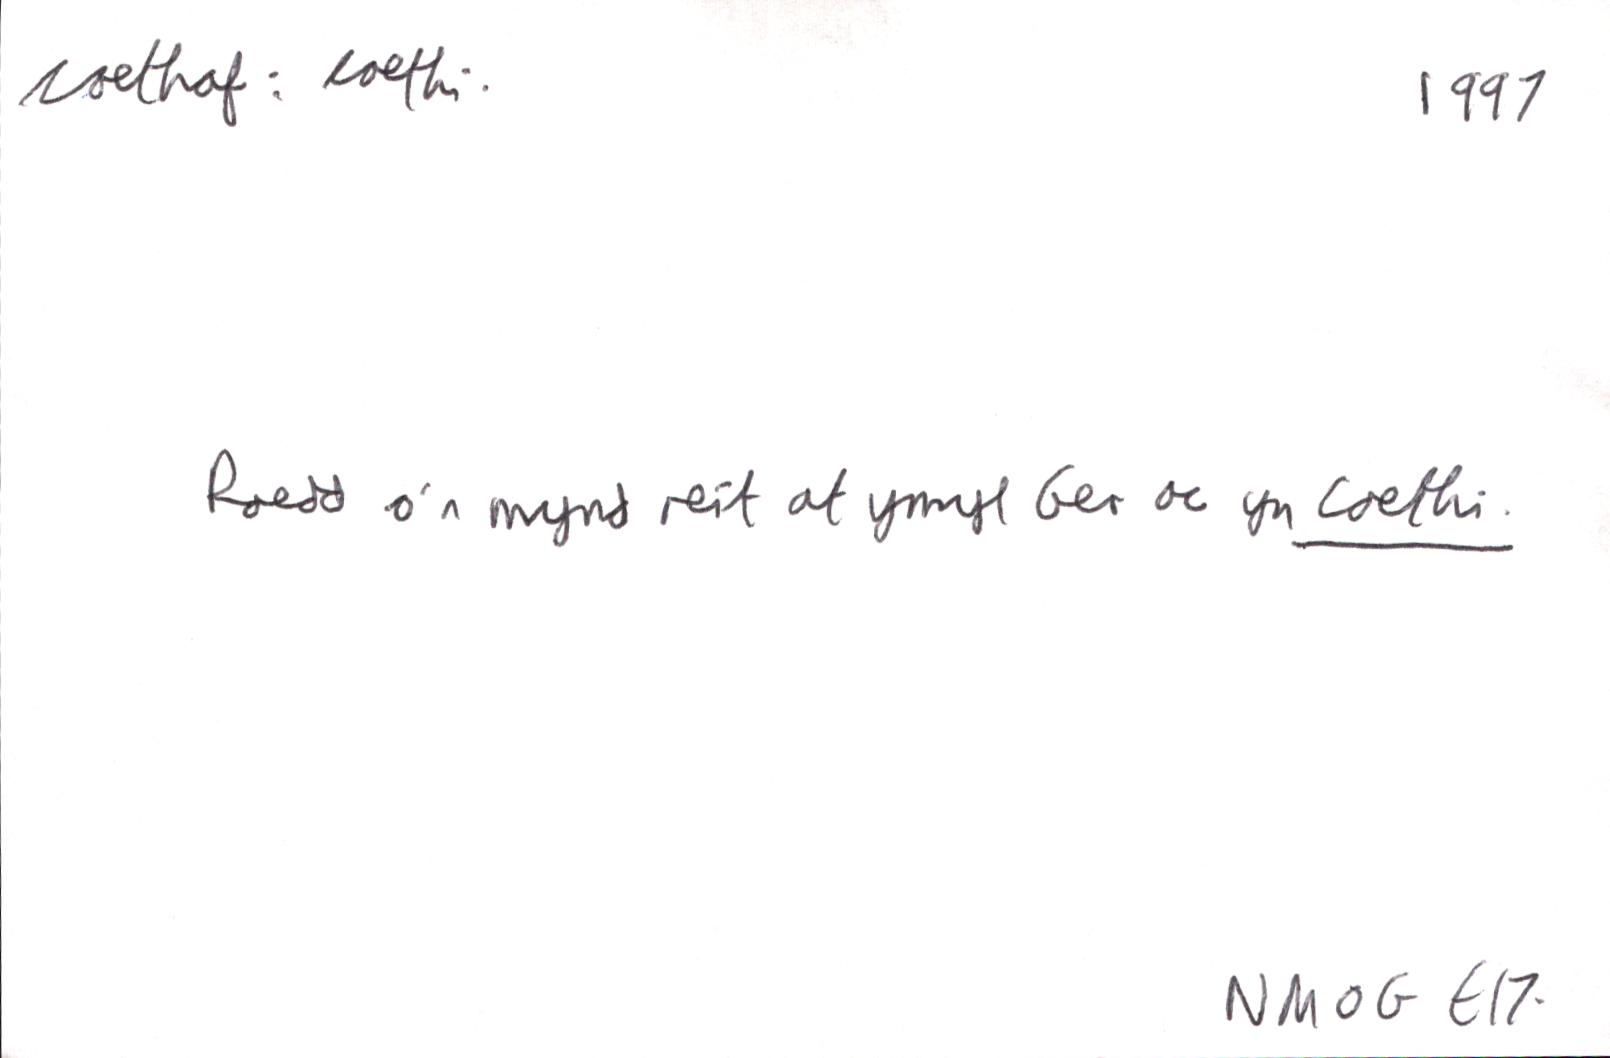 coethaf: coethi. 1997
Roedd o'n mynd reit at ymyl Ger ac yn coethi.
NMOG E17.